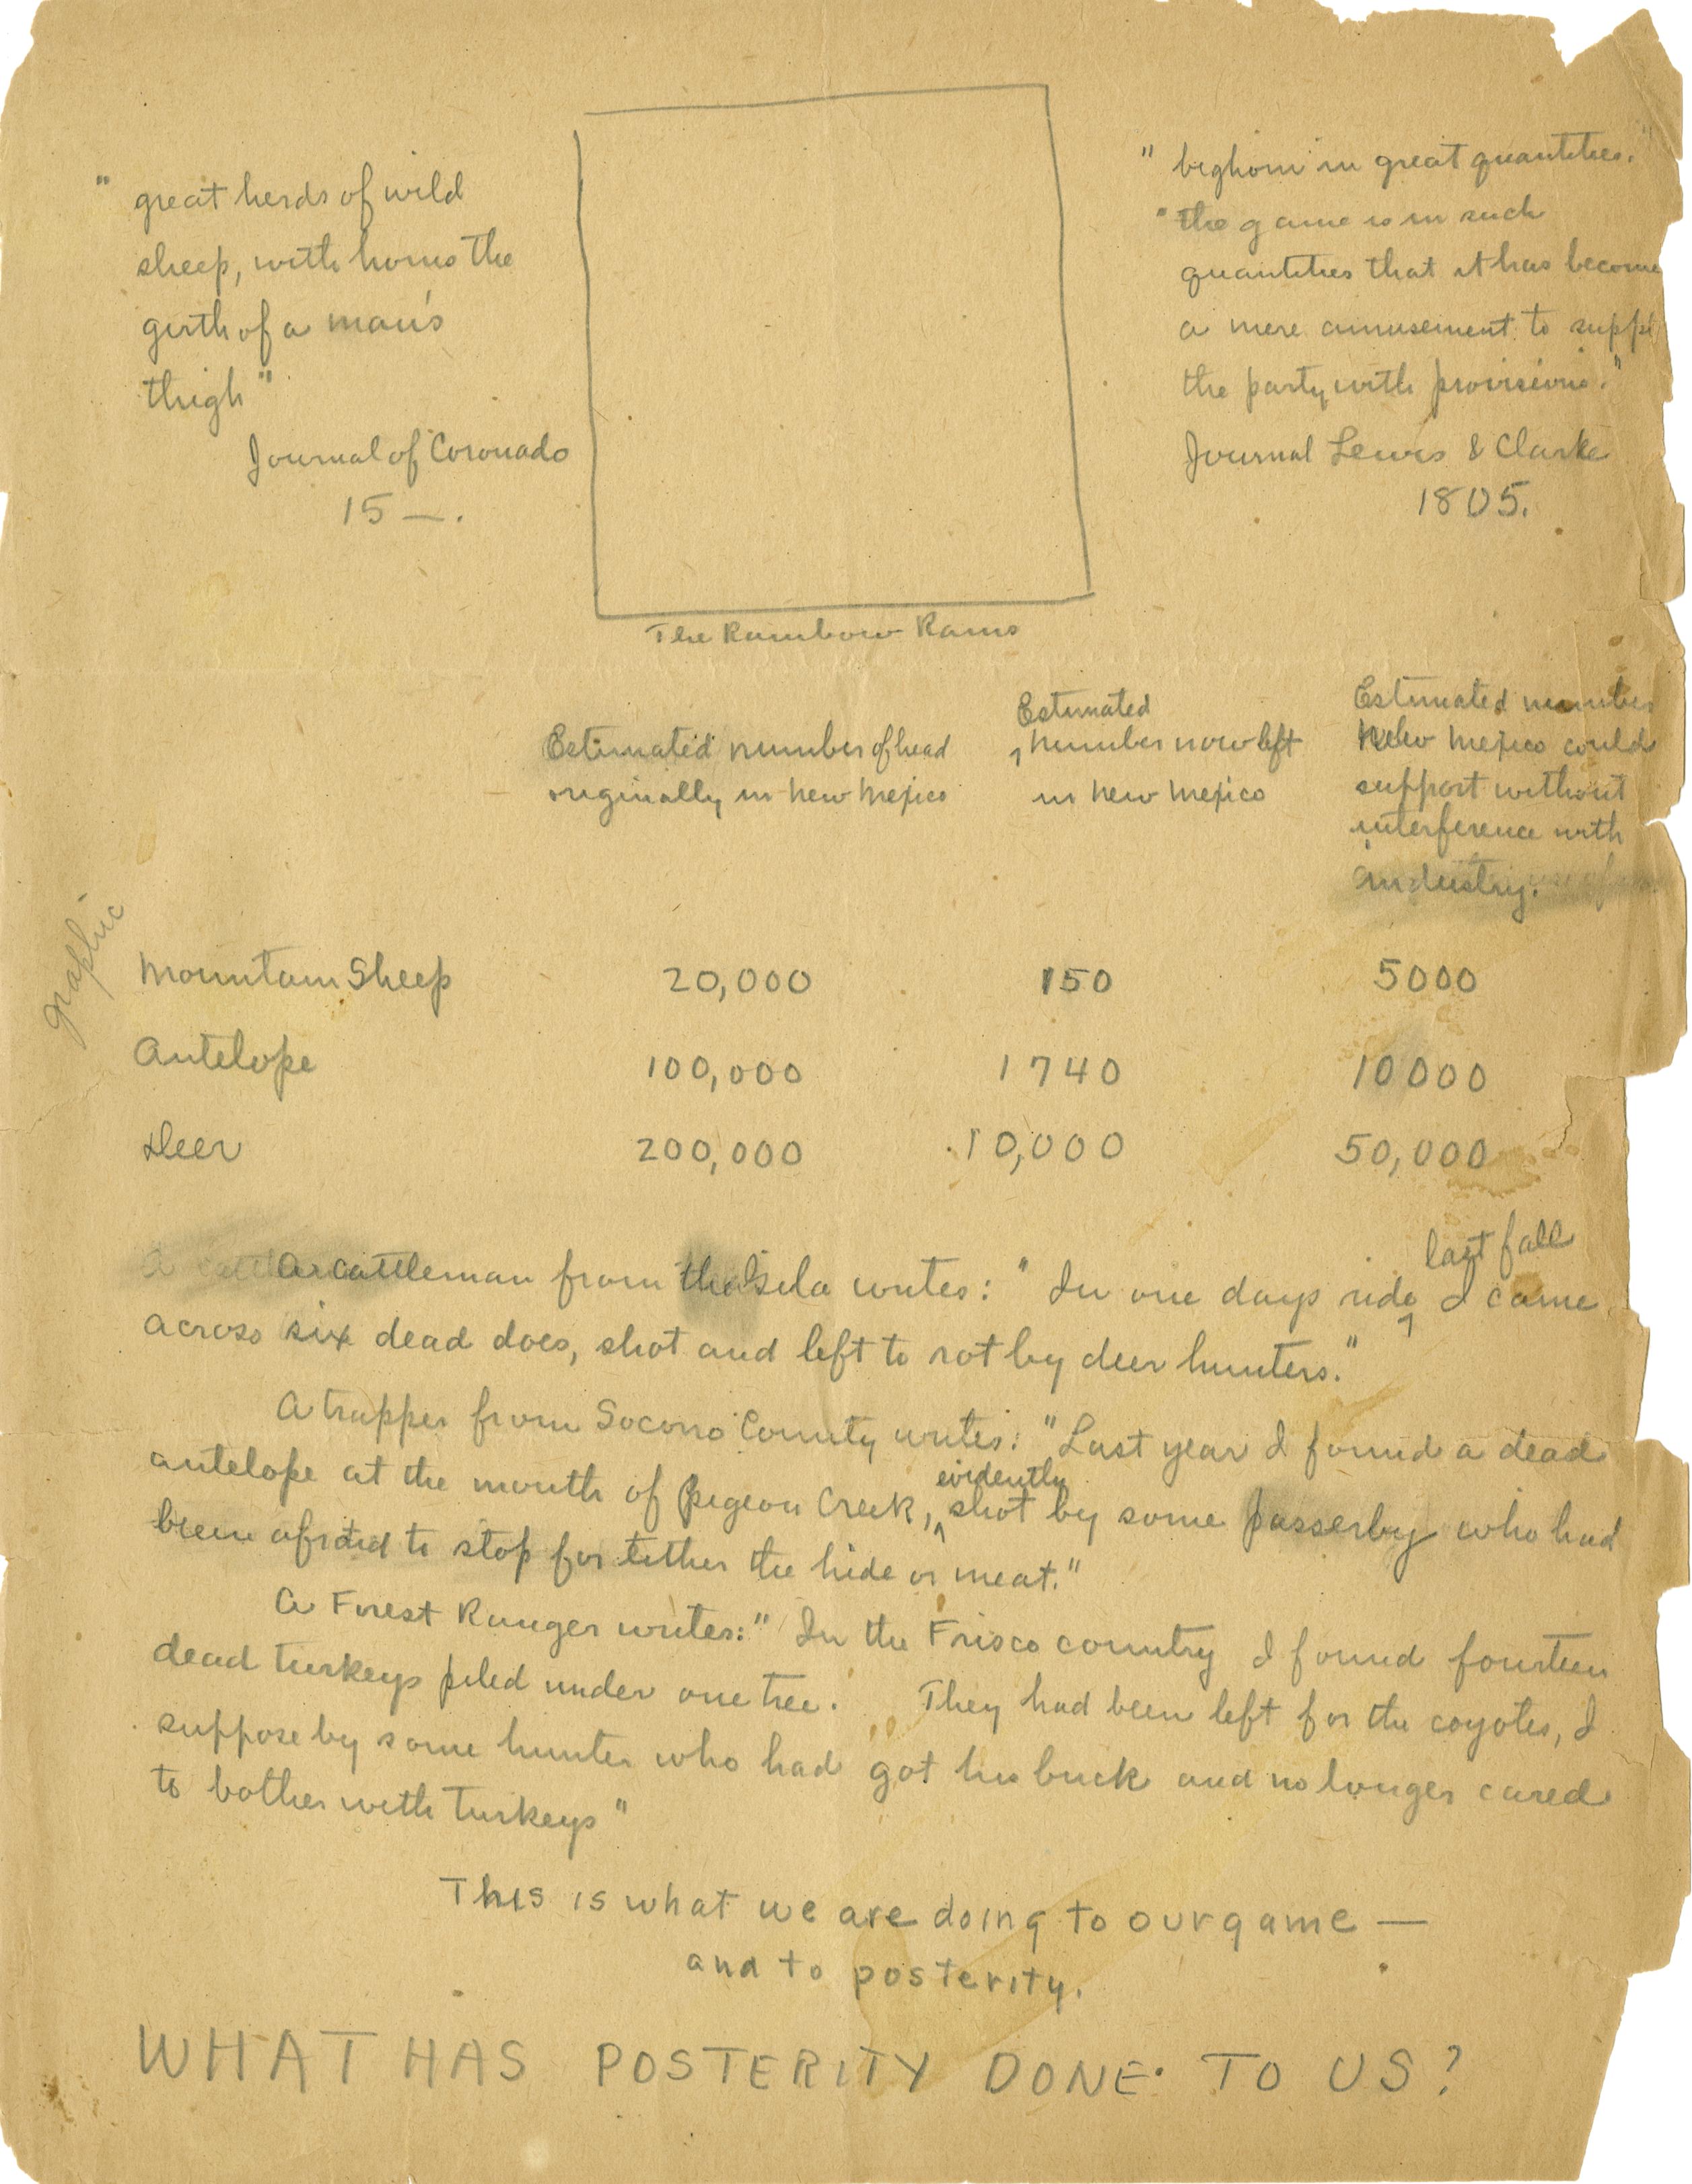 " great herds of wild
sheep, with horns the
girth of a man's
thigh"
Journal of Coronado
15 —.
" bighorn in great quantities."
"the game is in such
quantities that it has become
a mere amusement to suppl
the party with provisions."
Journal Lewis & Clarke
1805.
The Rainbow Rams
Estimated number of head
originally in New Mexico
Estimated
number now left
in New Mexico
Estimated number
New Mexico could
support without
interference with
industry.
graphic
Mountain Sheep 20,000 150 5000
Antelope 100,000 1740 10000
Deer 200,000 10,000 50,000
last fall
A cattleman from the Gila writes: " In one days ride I came
across six dead does, shot and left to rot by deer hunters."
A trapper from Socorro County writes: "Last year I found a dead
evidently
antelope at the mouth of Pigeon Creek, shot by some passerby who had
been afraid to stop for either the hide or meat."
A Forest Ranger writes: " In the Frisco country I found fourteen
dead turkeys piled under one tree. They had been left for the coyotes, I
suppose by some hunter who had got his buck and no longer cared
to bother with turkeys"
This is what we are doing to our game —
and to posterity.
WHAT HAS POSTERITY DONE TO US?